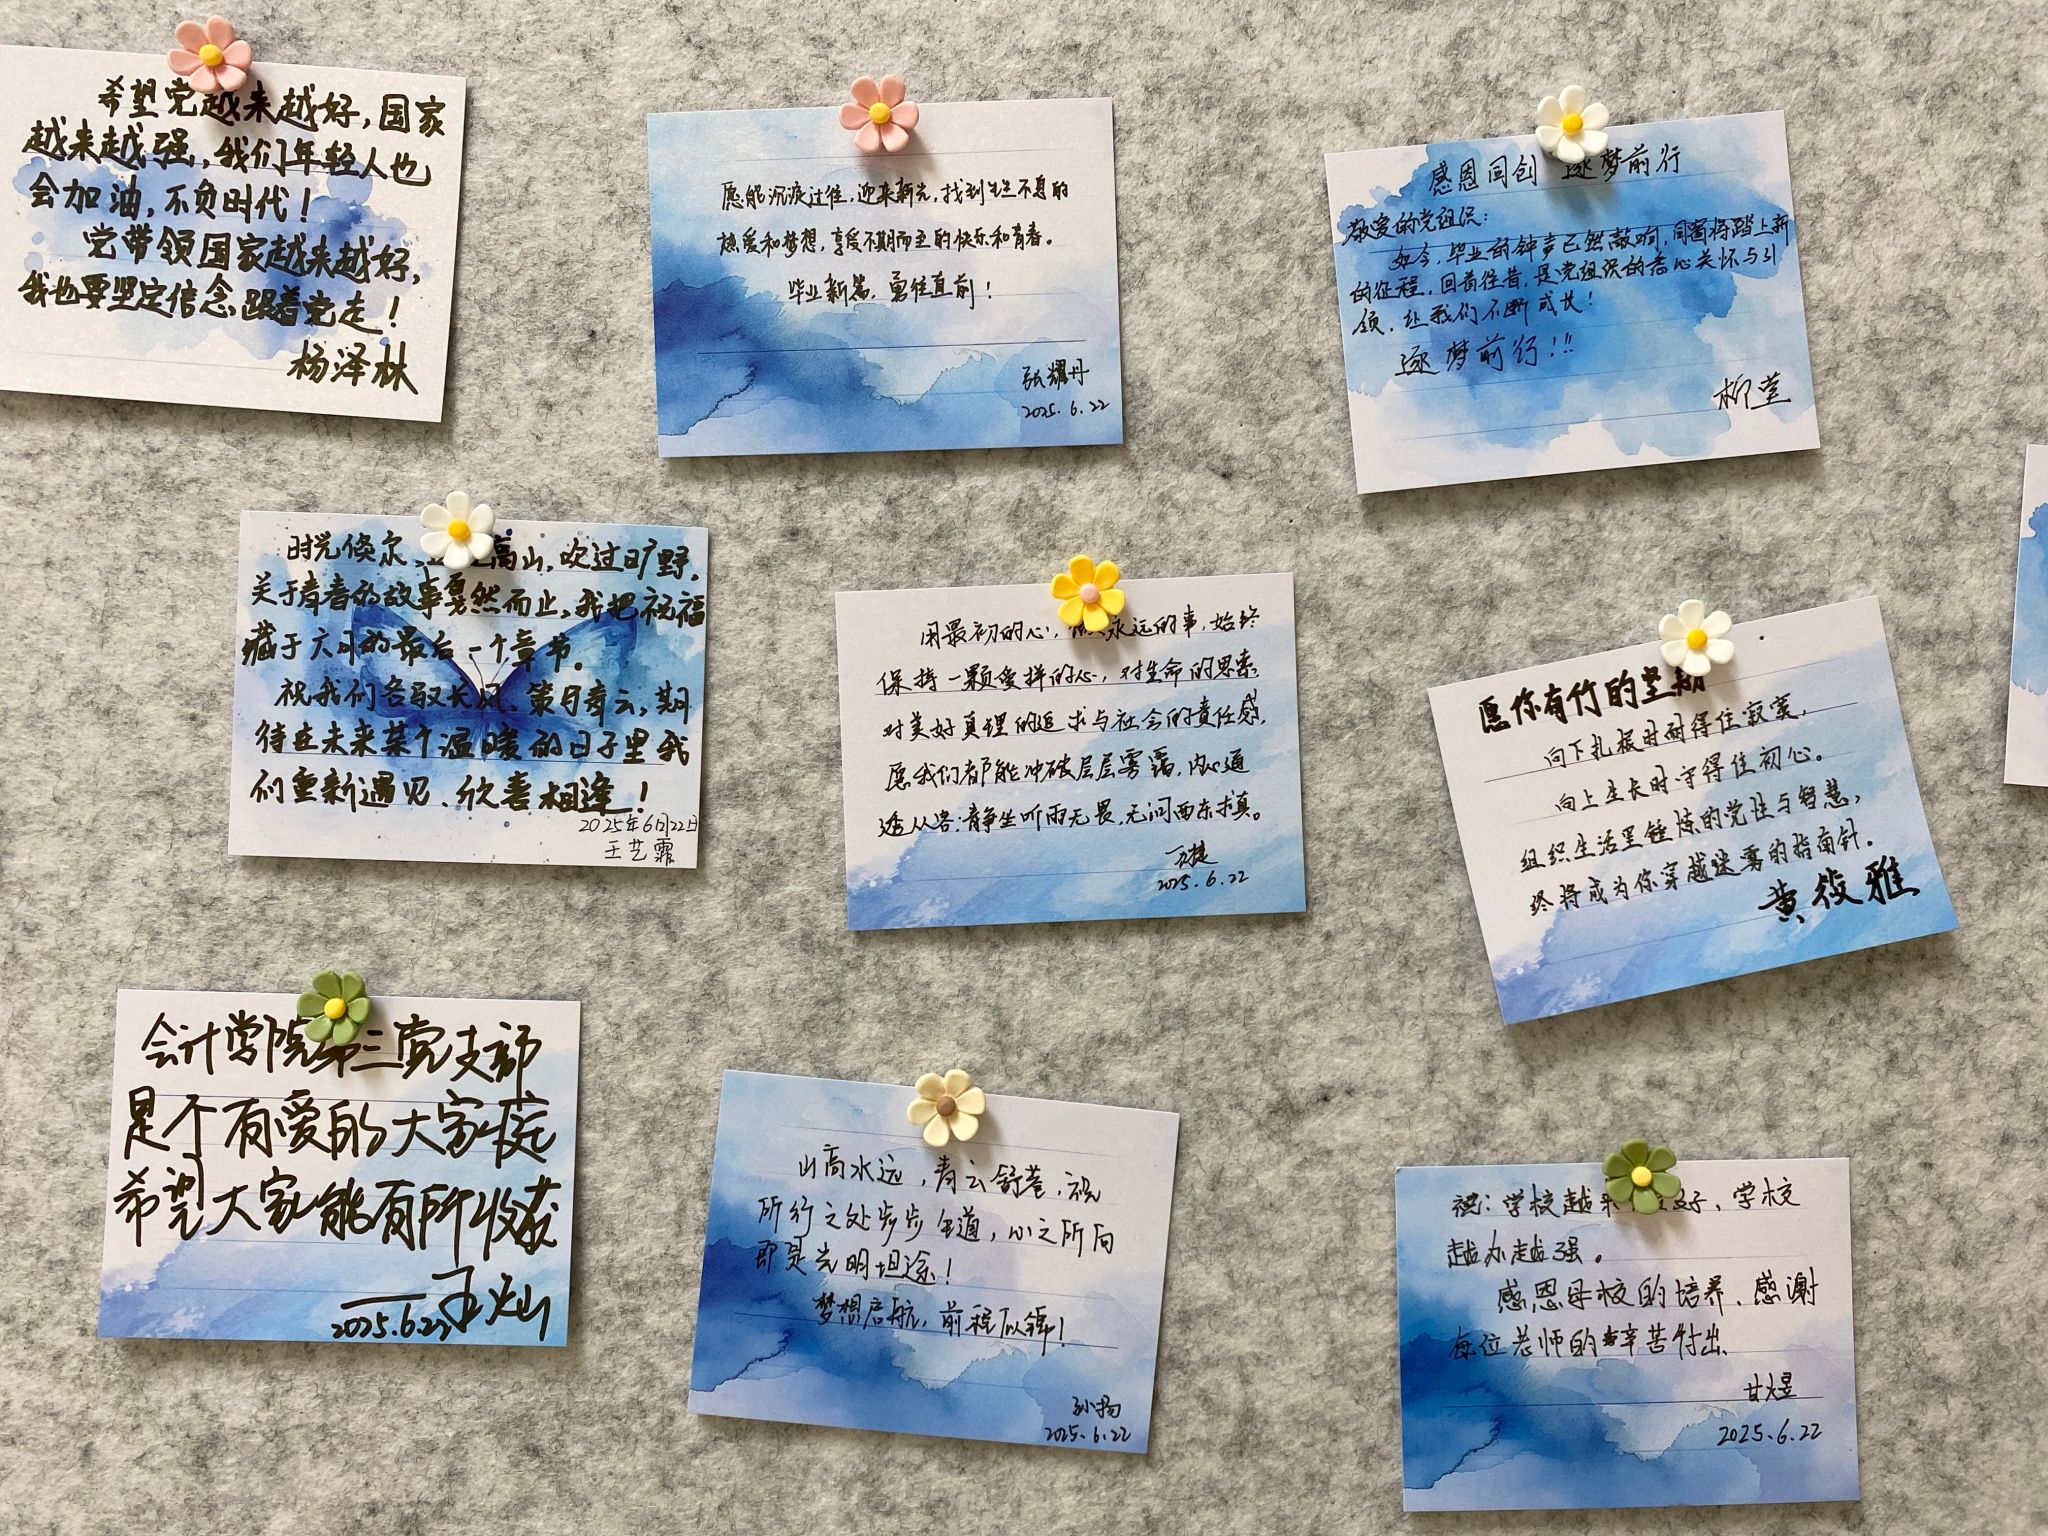 希望党越来越好,国家
越来越强,我们年轻人也
会加油,不负时代!
党带领国家越来越好,
我也要坚定信念,跟着党走!
杨泽林
愿能沉淀过往,迎来新光,找到生生不息的
热爱和梦想,享受不期而至的快乐和青春。
毕业新篇,勇往直前!
张耀丹
2025.6.22
感恩同创 逐梦前行
敬爱的党组织:
如今,毕业的钟声已然敲响,同窗将踏上新
的征程,回首往昔,是党组织的悉心关怀与引
领,让我们不断成长!
逐梦前行!!!
柳莹
时光倏尔、高山,吹过旷野,
关于青春的故事戛然而止,我把祝福
藏于六月的最后一个章节。
祝我们各驭长风、策马青云,期
待在未来某个温暖的日子里我
们重新遇见、欣喜相逢!
2025年6月22日
王艺霏
用最初的心,永远的事,始终
保持一颗爱拼的心,对生命的思索
对美好真理的追求与社会的责任感,
愿我们都能冲破层层雾霭,内心通
透从容;静坐听雨无畏,无问西东求真。
万捷
2025.6.22
愿你有竹的坚韧
向下扎根时耐得住寂寞,
向上生长时守得住初心。
组织生活里锤炼的党性与智慧,
终将成为你穿越迷雾的指南针。
黄筱雅
会计学院第三党支部
是个有爱的大家庭
希望大家能有所收获
——王灿
2025.6.22
山高水远,青云舒卷,祝
所行之处步步生道,心之所向
即是光明坦途!
梦想启航,前程似锦!
孙扬
2025.6.22
祝:学校越来越好,学校
越办越强。
感恩母校的培养、感谢
每位老师的辛苦付出、
甘煜
2025.6.22